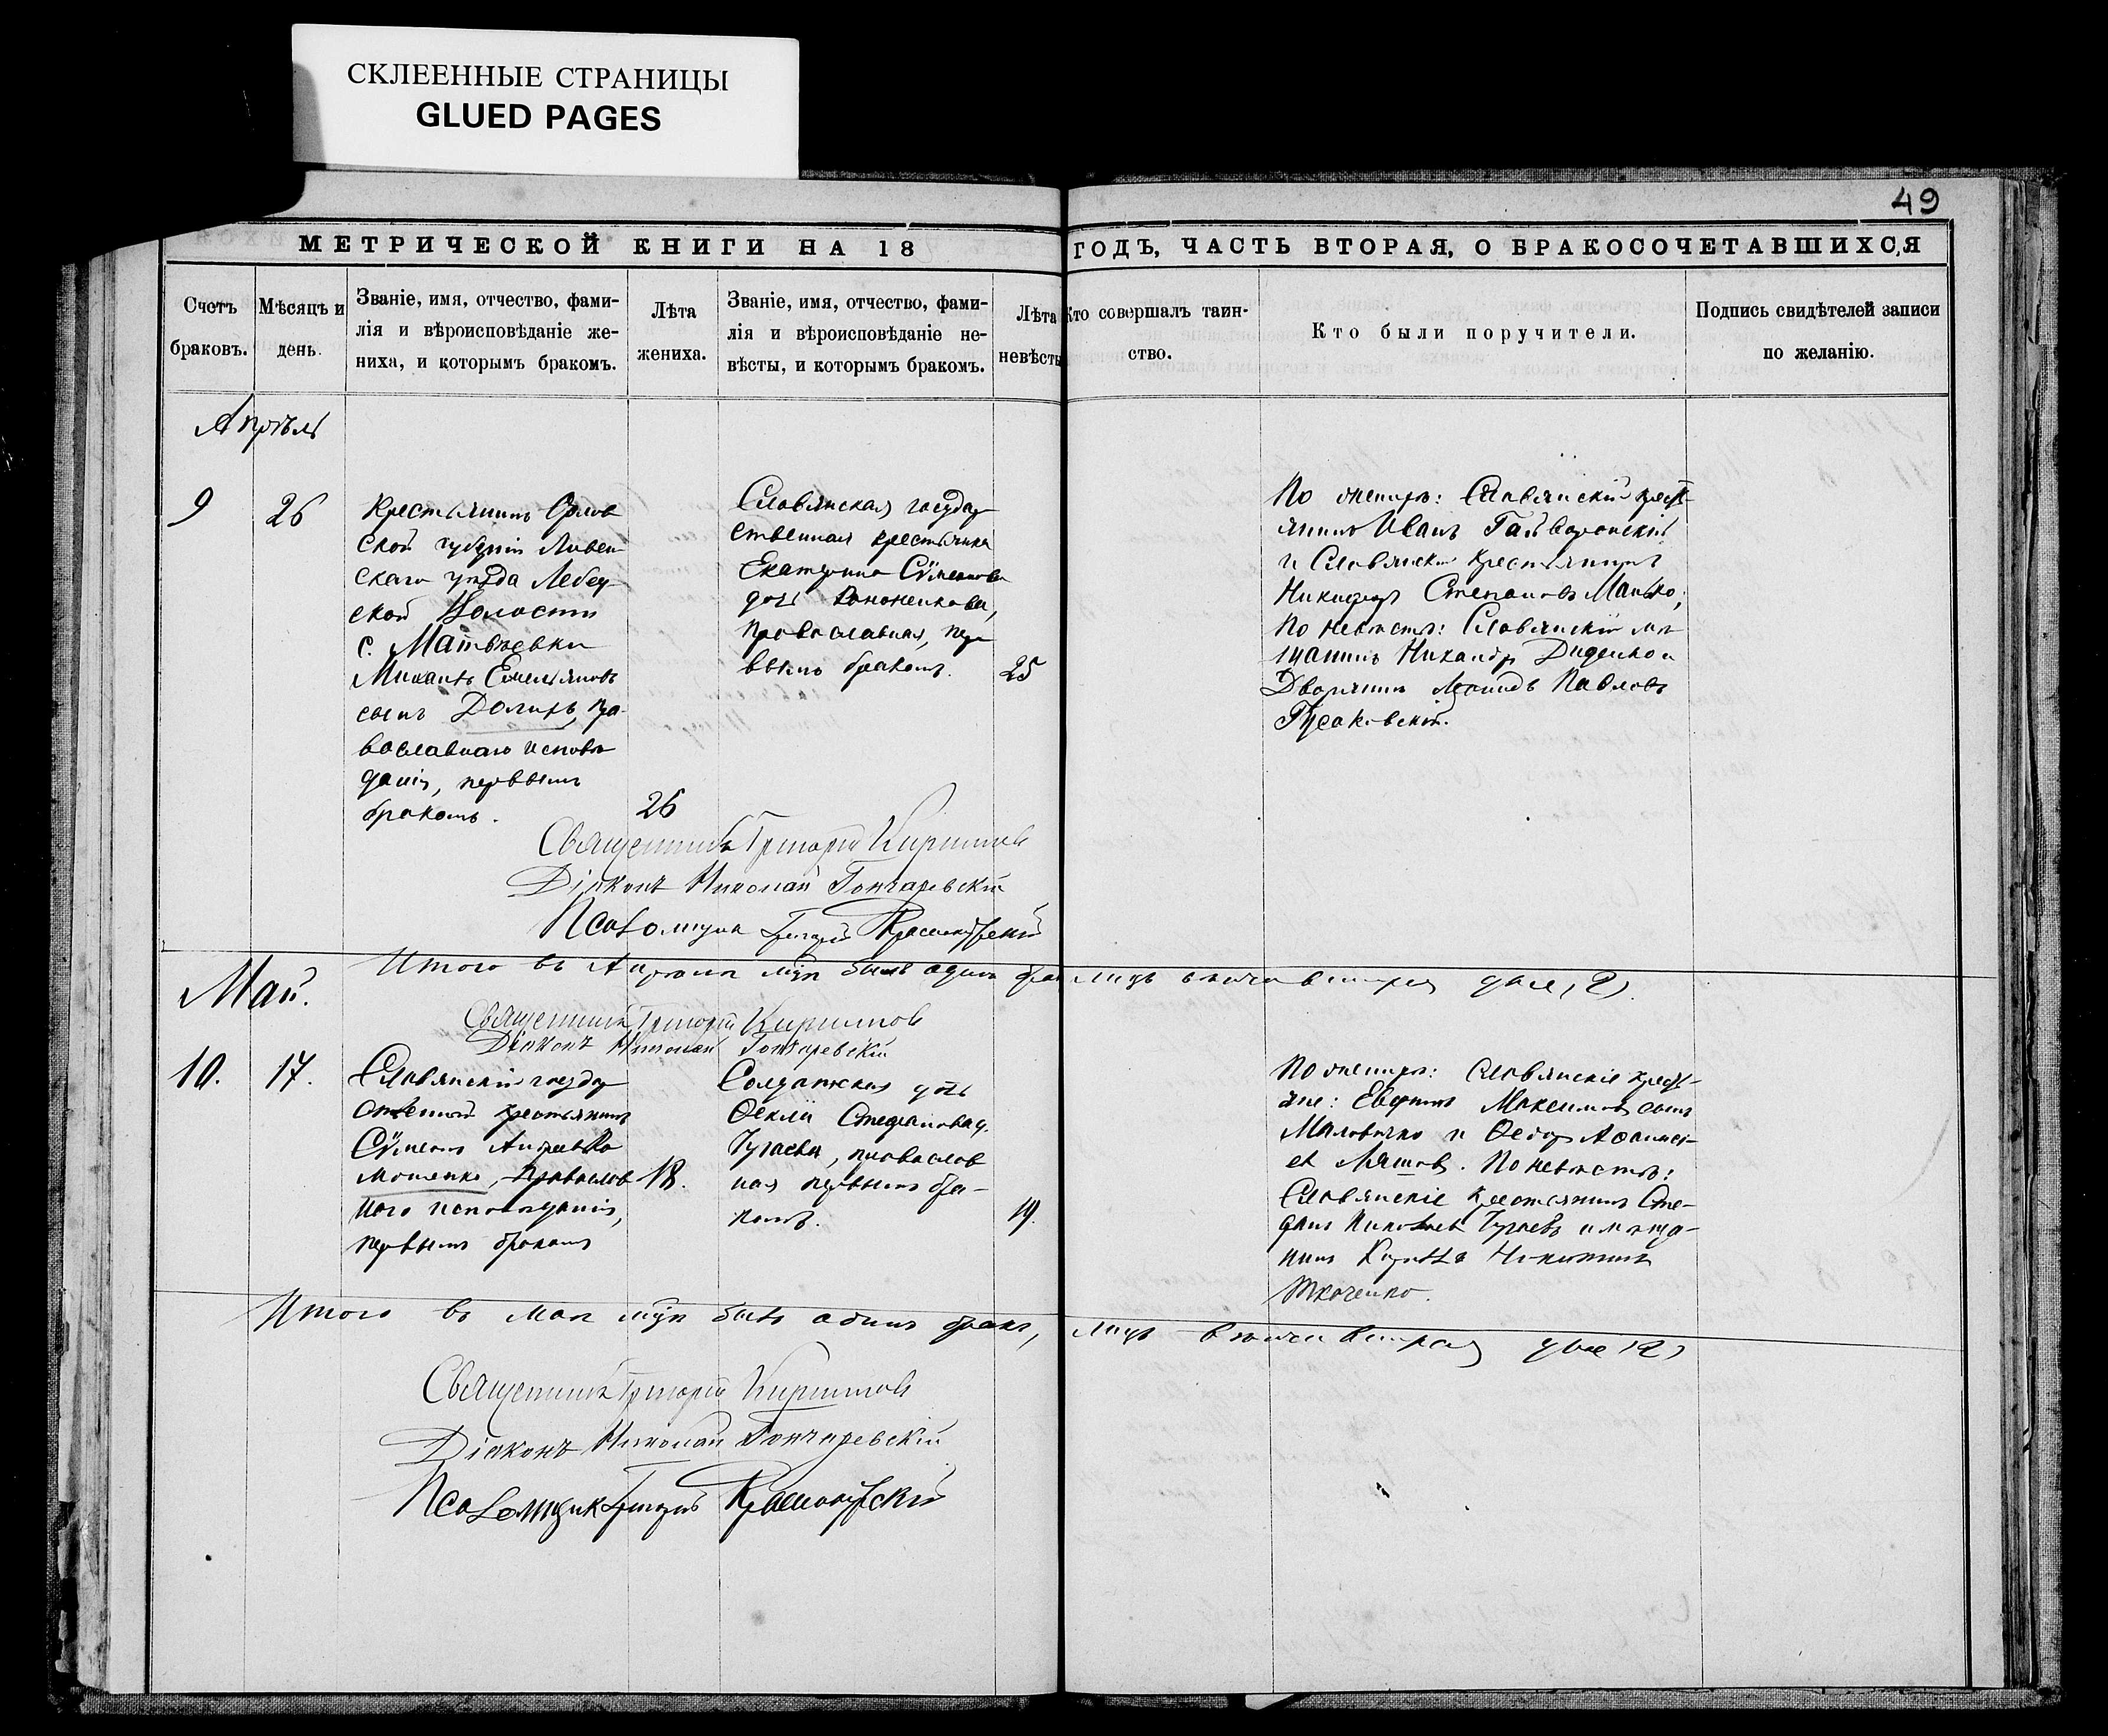 СКЛЕЕННЫЕ СТРАНИЦЫ
GLUED PAGES
49
МЕТРИЧЕСКОЙ КНИГИ НА 18 ГОДЪ, ЧАСТЬ ВТОРАЯ, О БРАКОСОЧЕТАВШИХСЯ
Счетъ
браковъ.
Мѣсяцъ и
день.
Званіе, имя, отчество, фами-
лія и вѣроисповѣданіе же-
ниха, и которымъ бракомъ.
Лѣта
жениха.
Званіе, имя, отчество, фами-
лія и вѣроисповѣданіе не-
вѣсты, и которымъ бракомъ.
Лѣта
невѣсты
Кто совершалъ таин-
ство.
Кто были поручители.
Подпись свидѣтелей записи
по желанію.
Апрѣль
9
26
Крестьянинъ Орлов
ской губерніи Ливен
скаго уѣзда
ской Волости
с. Матвѣевки
Михаилъ Емельяновъ
сынъ Долихъ, пра
вославнаго исповѣ
данія, первымъ
бракомъ.
26
Славянская государ
ственная крестьянка
Екатерина Сѵмеонова
дочь Кононенкова,
православная, пер
вымъ бракомъ.
25
По женихѣ: Славянскій крест
янинъ Иванъ Гайворонскій
и Славянскій крестьянинъ
Никифоръ Степановъ
По невѣстѣ: Славянскій мѣ
щанинъ Никандръ Диденко и
Дворянинъ Леонидъ Павловъ
Гусаковскій.
Священникъ Григорій
Діаконъ Николай Гончаревскій
Псаломщикъ Григорій
Итого въ Апрѣлѣ м-цѣ былъ одинъ лицъ двое (2).
Май.
Священникъ Григорій
Діаконъ Николай Гончаревскій
10.
17.
Славянскій государ
ственный крестьянинъ
Сѵмеонъ
православ
наго исповѣданія,
первымъ бракомъ
18.
Солдатская дочь
Ѳекла Стефанова
Чугаева, православ
ная первымъ бра-
комъ.
19.
По женихѣ: Славянскіе крест-
яне: Максимовъ сынъ
и Ѳедоръ
По невѣстѣ:
Славянскіе крестьянинъ Сте-
фанъ Чугаевъ и мѣща-
нинъ Никитинъ
Ткаченко.
Итого въ маѣ м-цѣ былъ одинъ бракъ, лицъ двое (2)
Священникъ Григорій
Діаконъ Николай Гончаревскій
Псаломщикъ Григорій